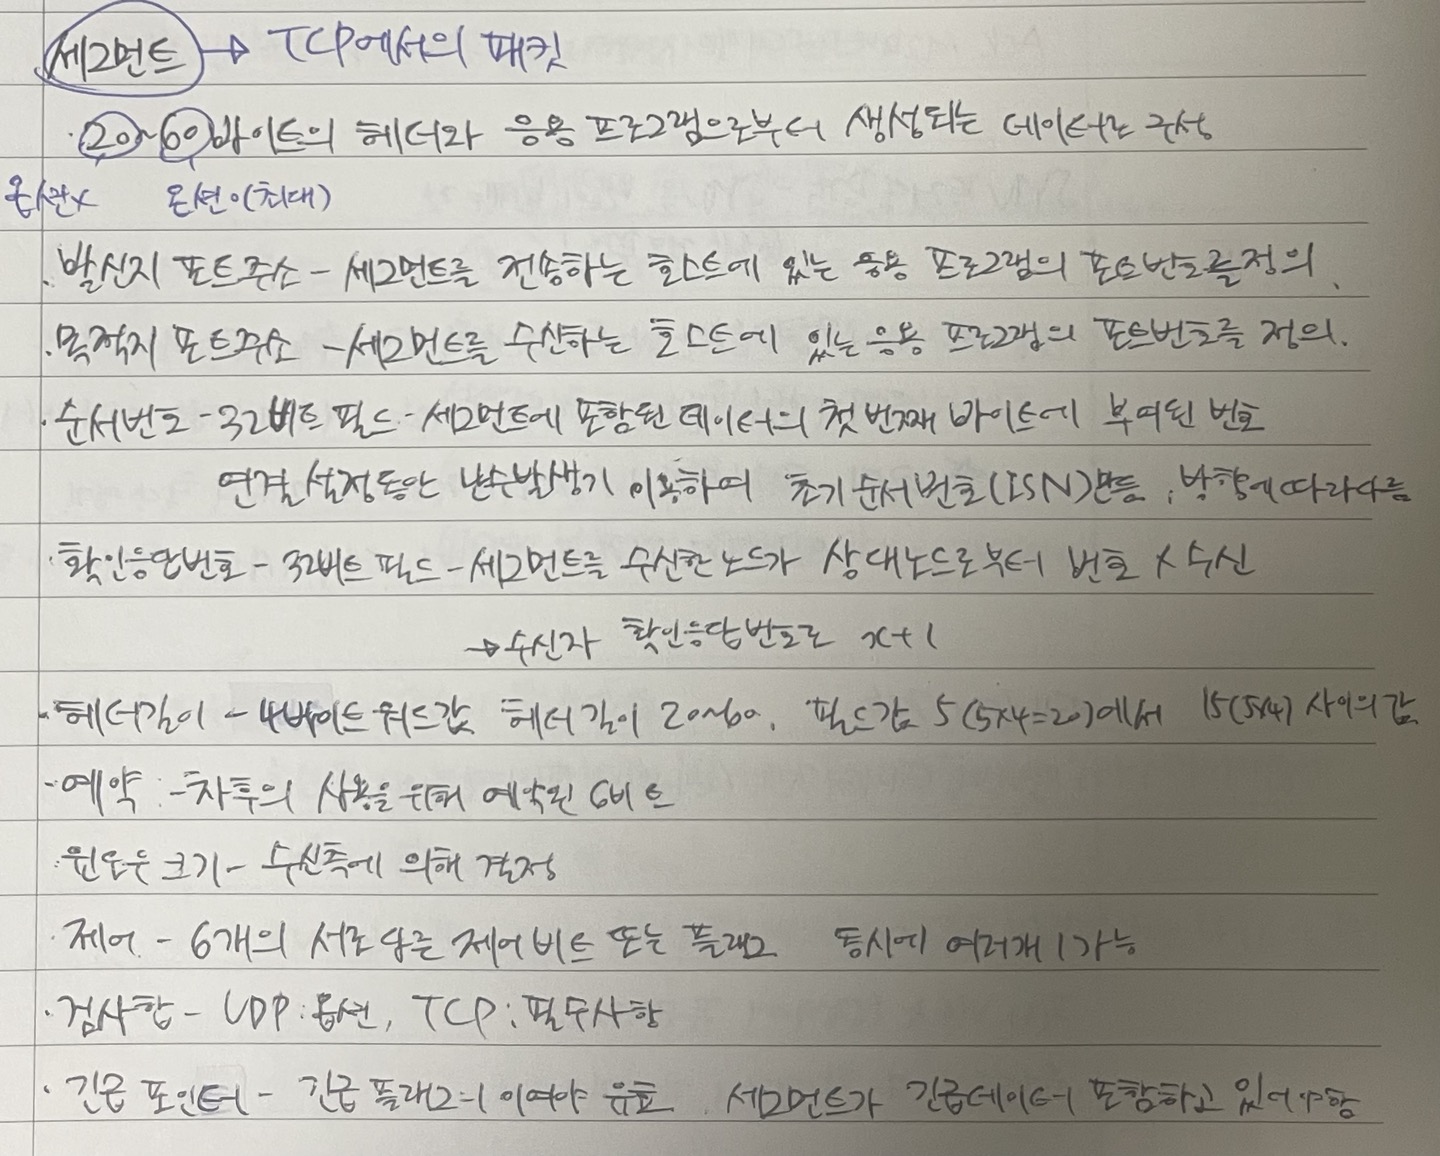 세그먼트 → TCP에서의 패킷
· 20~60바이트의 헤더와 응용 프로그램으로부터 생성되는 데이터로 구성
옵션x 옵션o(최대)
· 발신지 포트주소 - 세그먼트를 전송하는 호스트에 있는 응용 프로그램의 포트번호를 정의.
· 목적지 포트주소 - 세그먼트를 수신하는 호스트에 있는 응용 프로그램의 포트번호를 정의.
· 순서번호 - 32비트 필드 - 세그먼트에 포함된 데이터의 첫 번째 바이트에 부여된 번호
연결설정동안 난수발생기 이용하여 초기순서번호(ISN)만듬, 방향에 따라 다름
· 확인응답번호 - 32비트 필드 - 세그먼트를 수신한 노드가 상대노드로부터 번호 x 수신
→ 수신자 확인응답번호로 x+1
· 헤더길이 - 4바이트 워드값 헤더길이 20~60, 필드값 5(5x4=20)에서 15(5x4) 사이의 값
· 예약 : - 차후의 사용을 위해 예약된 6비트
· 윈도우 크기 - 수신측에 의해 결정
· 제어 - 6개의 서로 다른 제어비트 또는 플래그 동시에 여러개 1 가능
· 검사합 - UDP : 옵션, TCP : 필수사항
· 긴급 포인터 - 긴급 플래그=1 이여야 유효. 세그먼트가 긴급데이터 포함하고 있어야함